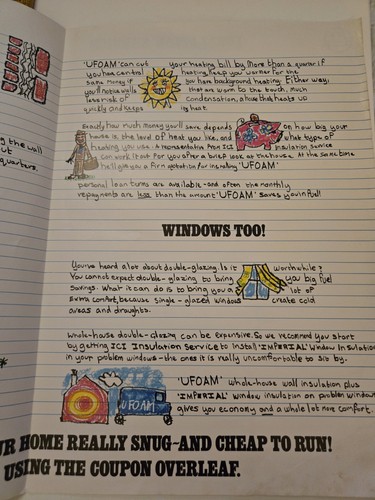 'UFOAM' can cut your heating bill by more than a quarter if
you have central heating. Keep you warmer for the
same money if you have background heating. Either way,
you'll have walls that are warm to the touch, much
less risk of condensation, a house that heats up
quickly and keeps its heat.
Exactly how much money you'll save depends on how big your
house is the level of heat you like, and what type of
heating you use. A representative from ICI Insulation Service
can work it out for you after a brief look at the house. At the same time
he'll give you a firm quotation for installing 'UFOAM'
personal loan terms are available-and often the monthly
repayments are less than the amount 'UFOAM' saves you in fuel!
WINDOWS TOO!
You've heard a lot about double-glazing. Is it worthwhile?
You cannot expect double-glazing to bring you big fuel
savings. What it can do is to bring you a lot of
extra comfort, because single-glazed windows create cold
areas and draughts.
Whole-house double-glazing can be expensive. So we recommend you start
by getting ICI Insulation Service to install 'IMPERIAL' Window Insulation
in your problem windows-the ones it is really uncomfortable to sit by.
'UFOAM' whole-house wall insulation plus
'IMPERIAL' window insulation on problem windows
gives you economy and a whole lot more comfort.
UFOAM
UR HOME REALLY SNUG-AND CHEAP TO RUN!
USING THE COUPON OVERLEAF.
g the wall
ut
quarters.
*